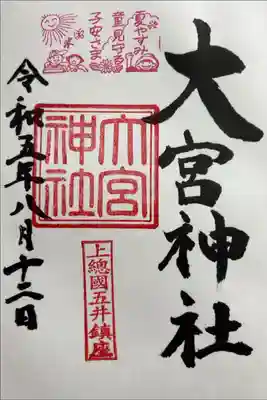 大宮神社
夏やすみ
童見守る
子安さま
大宮
神社
上總國五井鎮座
令和五年八月十二日